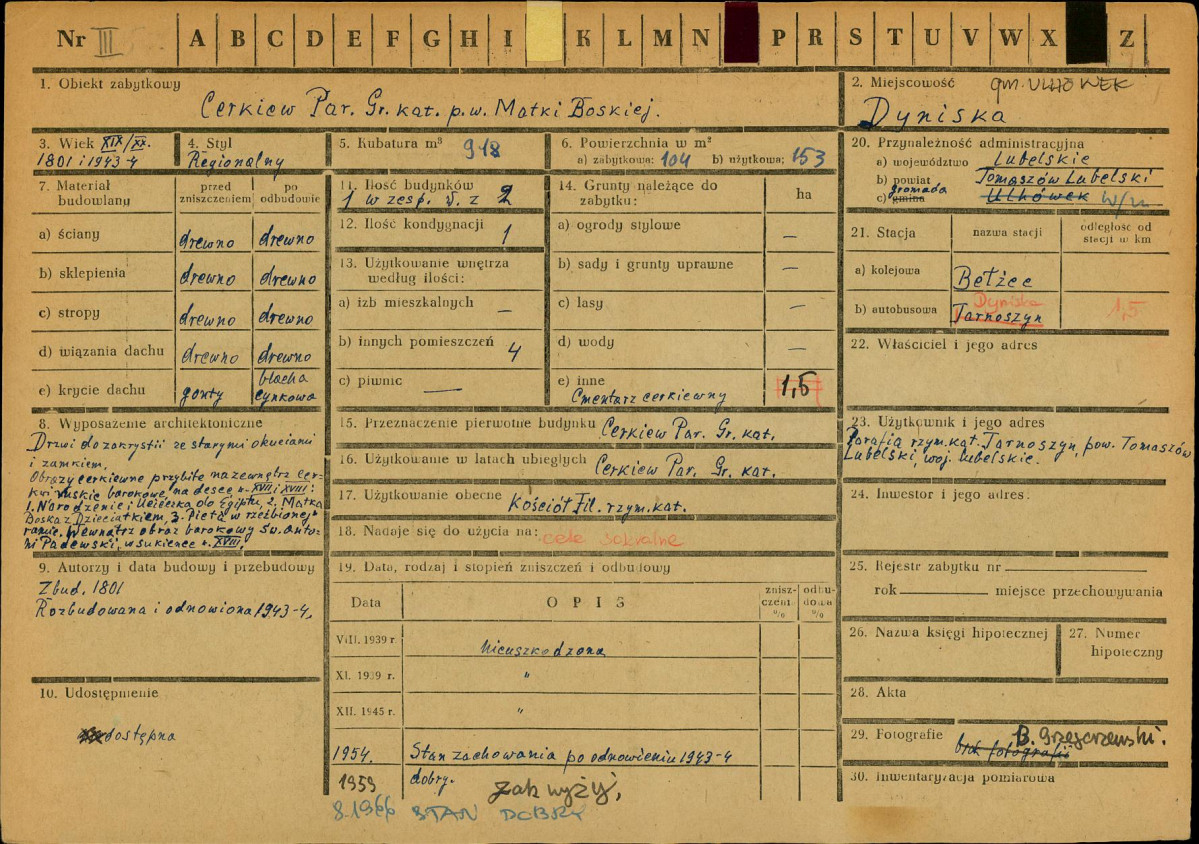 Nr III A B C D E F G H I K L M N P R S T U V W X Z
1. Obiekt zabytkowy
Cerkiew Par. Gr. kat. p.w. Matki Boskiej.
2. Miejscowość gm. ULHÓWEK
Dyniska
3. Wiek XIX/XX.
1801 i 1943-4
4. Styl
Regionalny
5. Kubatura m³ 918
6. Powierzchnia w m²
a) zabytkowa: 104 b) użytkowa: 153
20. Przynależność administracyjna
a) województwo Lubelskie
b) powiat Tomaszów Lubelski
gromada
c) gmina Ulhówek w/m
7. Materiał budowlany
przed zniszczeniem
po odbudowie
a) ściany drewno drewno
b) sklepienia drewno drewno
c) stropy drewno drewno
d) wiązania dachu drewno drewno
e) krycie dachu gonty blacha cynkowa
11. Ilość budynków
1 w zesp. b. z 2
12. Ilość kondygnacji 1
13. Użytkowanie wnętrza
według ilości:
a) izb mieszkalnych —
b) innych pomieszczeń 4
c) piwnic —
14. Grunty należące do
zabytku: ha
a) ogrody stylowe —
b) sady i grunty uprawne —
c) lasy —
d) wody —
e) inne 1,5
Cmentarz cerkiewny
21. Stacja nazwa stacji odległość od stacji w km
a) kolejowa Bełżec
Dyniska
b) autobusowa Tarnoszyn 1,5
22. Właściciel i jego adres
8. Wyposażenie architektoniczne
Drzwi do zakrystii ze starymi okuciami
i zamkiem.
Obrazy cerkiewne przybite na zewnątrz cer-
kwi ruskie barokowe, na desce w. XVII i XVIII:
1. Narodzenie i Ucieczka do Egiptu, 2. Matka
Boska z Dzieciątkiem, 3. Pietà w rzeźbionej
ramie. Wewnątrz obraz barokowy Św. Anto-
ni Padewski, w sukience w. XVIII.
15. Przeznaczenie pierwotne budynku Cerkiew Par. Gr. kat.
16. Użytkowanie w latach ubiegłych Cerkiew Par. Gr. kat.
17. Użytkowanie obecne
Kościół Fil. rzym. kat.
18. Nadaje się do użycia na: cele sakralne
23. Użytkownik i jego adres
Parafia rzym. kat. Tarnoszyn, pow. Tomaszów
Lubelski, woj. lubelskie.
24. Inwestor i jego adres.
9. Autorzy i data budowy i przebudowy
Zbud. 1801
Rozbudowana i odnowiona 1943-4.
10. Udostępnienie
dostępna
19. Data, rodzaj i stopień zniszczeń i odbudowy
Data OPIS zniszczenia % odbudowa %
VIII. 1939 r. nieuszkodzona
XI. 1939 r. "
XII. 1945 r. "
1954. Stan zachowania po odnowieniu 1943-4
dobry.
1959 jak wyżej,
8.1966 STAN DOBRY
25. Rejestr zabytku nr
rok miejsce przechowywania
26. Nazwa księgi hipotecznej
27. Numer hipoteczny
28. Akta
29. Fotografie B. Grzegorzewski.
brak fotografii
30. Inwentaryzacja pomiarowa